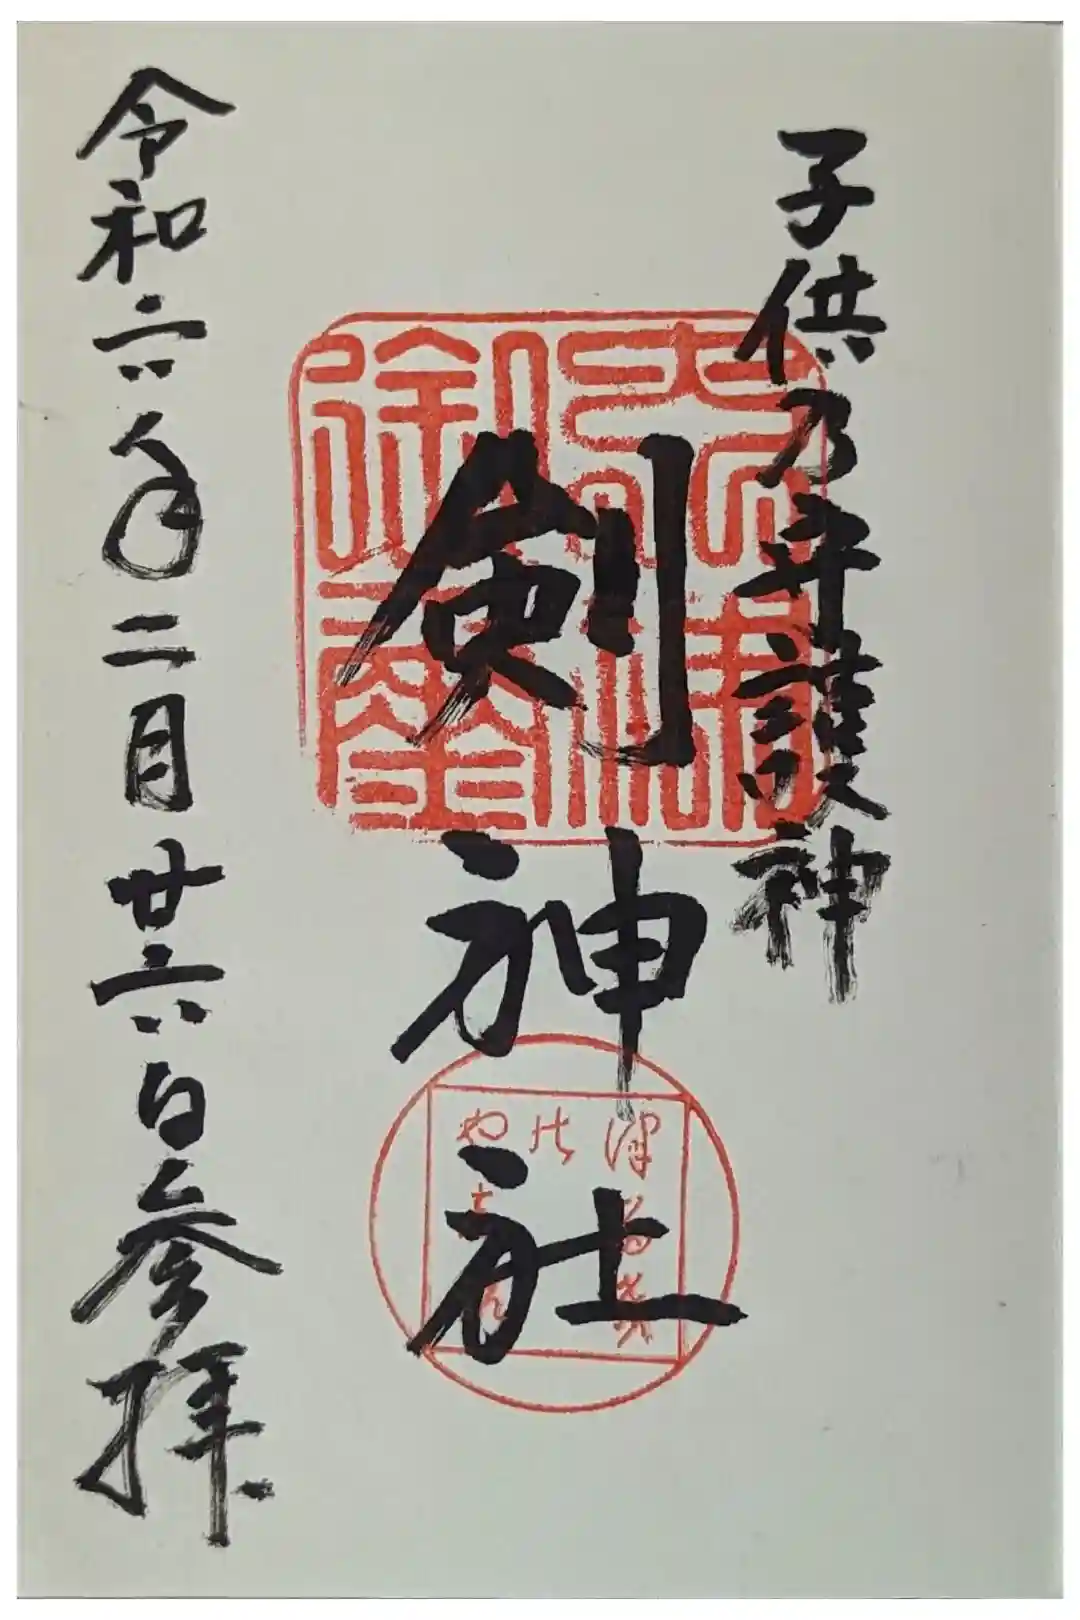 子供乃守護神
剣神社
令和六年二月廿六日参拝